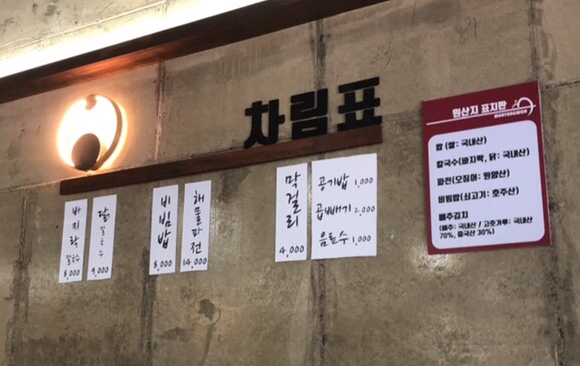 차림표
바지락
칼국수
8,000
닭
칼국수
9,000
비빔밥
8,000
해물파전
14,000
막걸리
4,000
공기밥 1,000
곱빼기 2,000
음료수 1,000
원산지 표지판
밥 (쌀: 국내산)
칼국수(바지락, 닭: 국내산)
파전(오징어: 원양산)
비빔밥(쇠고기: 호주산)
배추김치
(배추: 국내산 / 고춧가루: 국내산
70%, 중국산 30%)